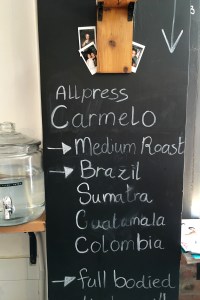 Allpress
Carmelo
→ Medium Roast
→ Brazil
Sumatra
Guatamala
Colombia
→ full bodied